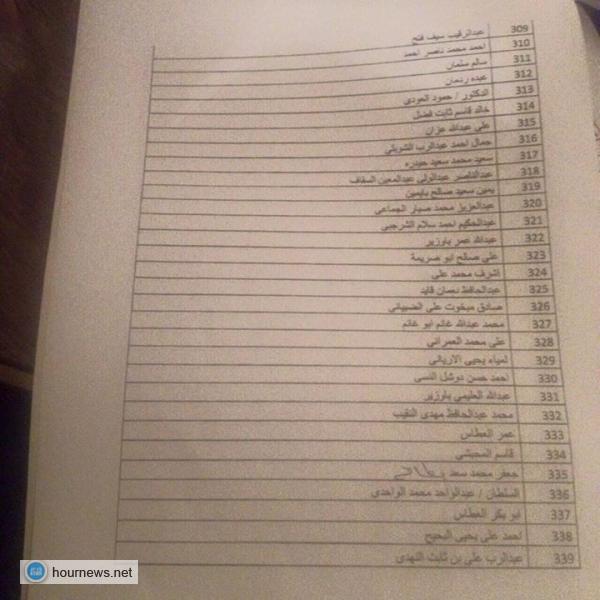 309 عبدالرقيب سيف فتح
310 احمد محمد ناصر احمد
311 سالم سلمان
312 عبده ردمان
313 الدكتور / حمود العودي
314 خالد قاسم ثابت فضل
315 علي عبدالله عزان
316 جمال احمد عبدالرب الشويلي
317 سعيد محمد سعيد حيدره
318 عبدالناصر عبدالولي عبدالمعين السقاف
319 يمين سعيد صالح بايمين
320 عبدالعزيز محمد صبار الجماعي
321 عبدالحكيم احمد سلام الشرجبي
322 عبدالله عمر باوزير
323 علي صالح ابو صريمة
324 اشرف محمد علي
325 عبدالحافظ نعمان قايد
326 صادق مبخوت علي الضبياني
327 محمد عبدالله غانم ابو غانم
328 علي محمد العمراني
329 لمياء يحيى الارياني
330 احمد حسن دوشل النسي
331 عبدالله العليمي باوزير
332 محمد عبدالحافظ مهدي النقيب
333 عمر العطاس
334 قاسم المحبشي
335 جعفر محمد سعد
336 السلطان / عبدالواحد محمد الواحدي
337 ابو بكر العطاس
338 احمد علي يحيى البحيح
339 عبدالرب علي بن ثابت النهدي
hournews.net